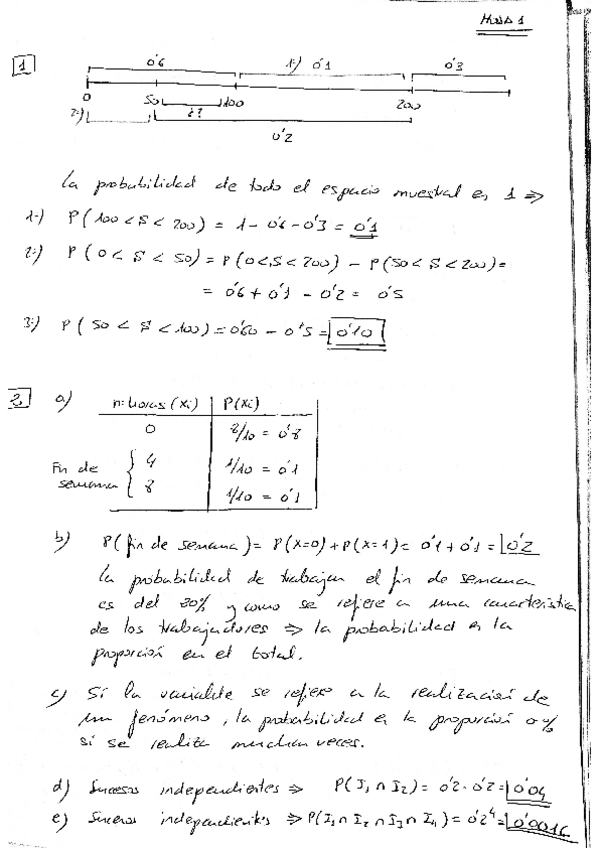 HOJA 1
1
0'6 1:) 0'1 0'3
0 50 100 200
2:) ¿?
0'2
La probabilidad de todo el espacio muestral es 1 =>
1:) P(100 < S < 200) = 1 - 0'6 - 0'3 = 0'1
2:) P(0 < S < 50) = P(0 < S < 200) - P(50 < S < 200) =
= 0'6 + 0'1 - 0'2 = 0'5
3:) P(50 < S < 100) = 0'60 - 0'5 = 0'10
2 a) n: horas (xi) P(xi)
0 8/10 = 0'8
Fin de semana { 4 1/10 = 0'1
8 1/10 = 0'1
b) P(fin de semana) = P(X=0) + P(X=1) = 0'1 + 0'1 = 0'2
La probabilidad de trabajar el fin de semana
es del 20% y como se refiere a una característica
de los trabajadores => la probabilidad es la
proporción en el total.
c) Si la variable se refiere a la realización de
un fenómeno, la probabilidad es la proporción o %
si se realiza muchas veces.
d) Sucesos independientes => P(I1 ∩ I2) = 0'2 · 0'2 = 0'04
e) Sucesos independientes => P(I1 ∩ I2 ∩ I3 ∩ I4) = 0'2⁴ = 0'0016